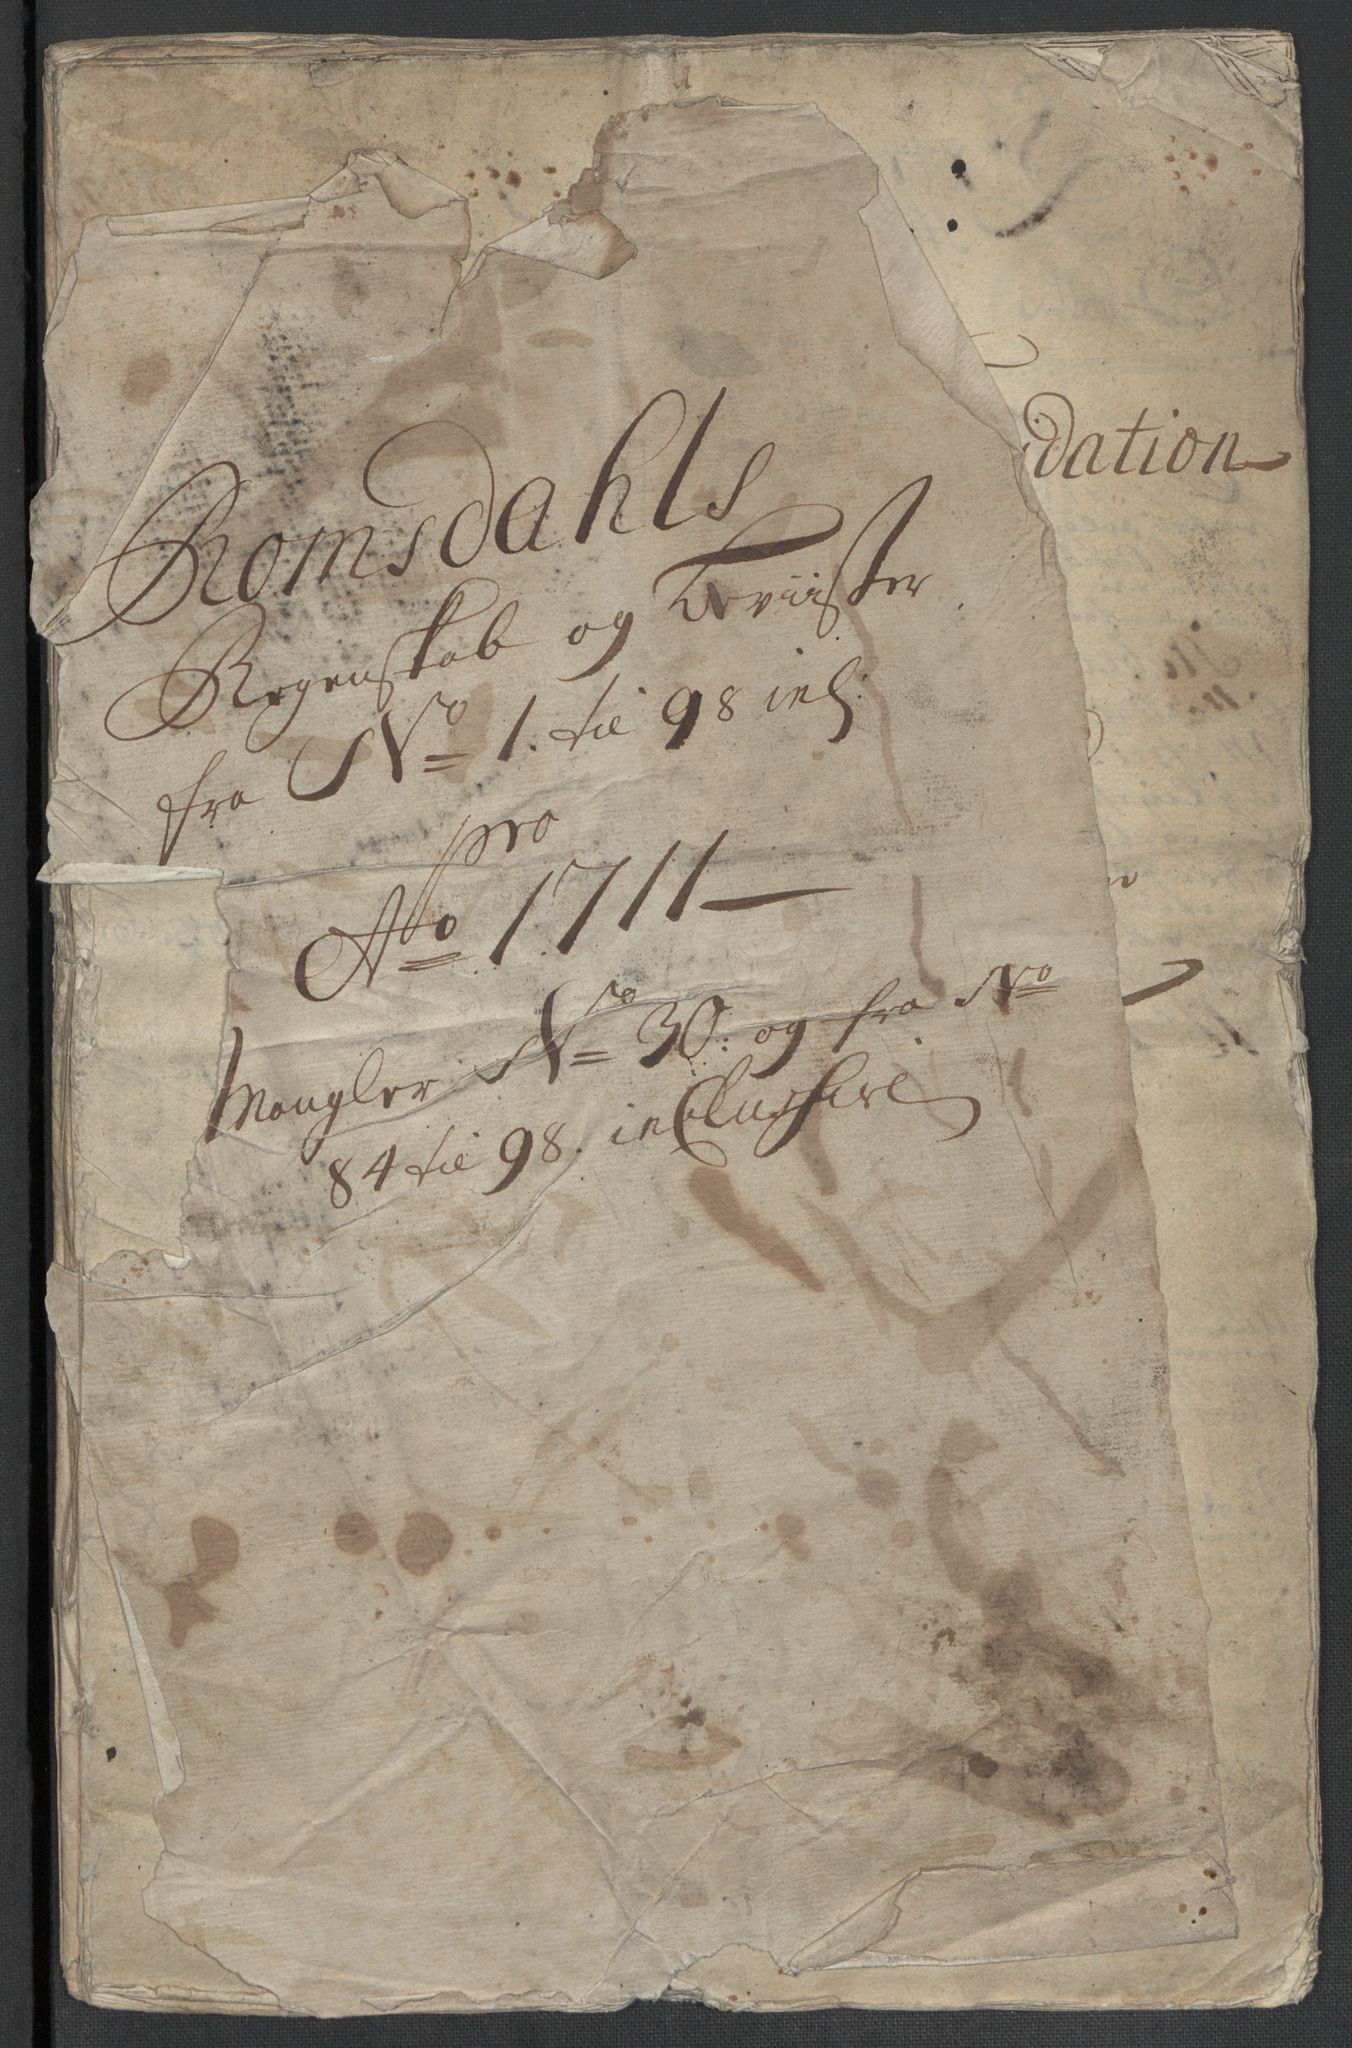 Romsdahls
Regenskab og
fra No 1. til 98 incl:
pro
Ao 1711
dation
Mangler No 30: og fra No
84 til 98. inclusive